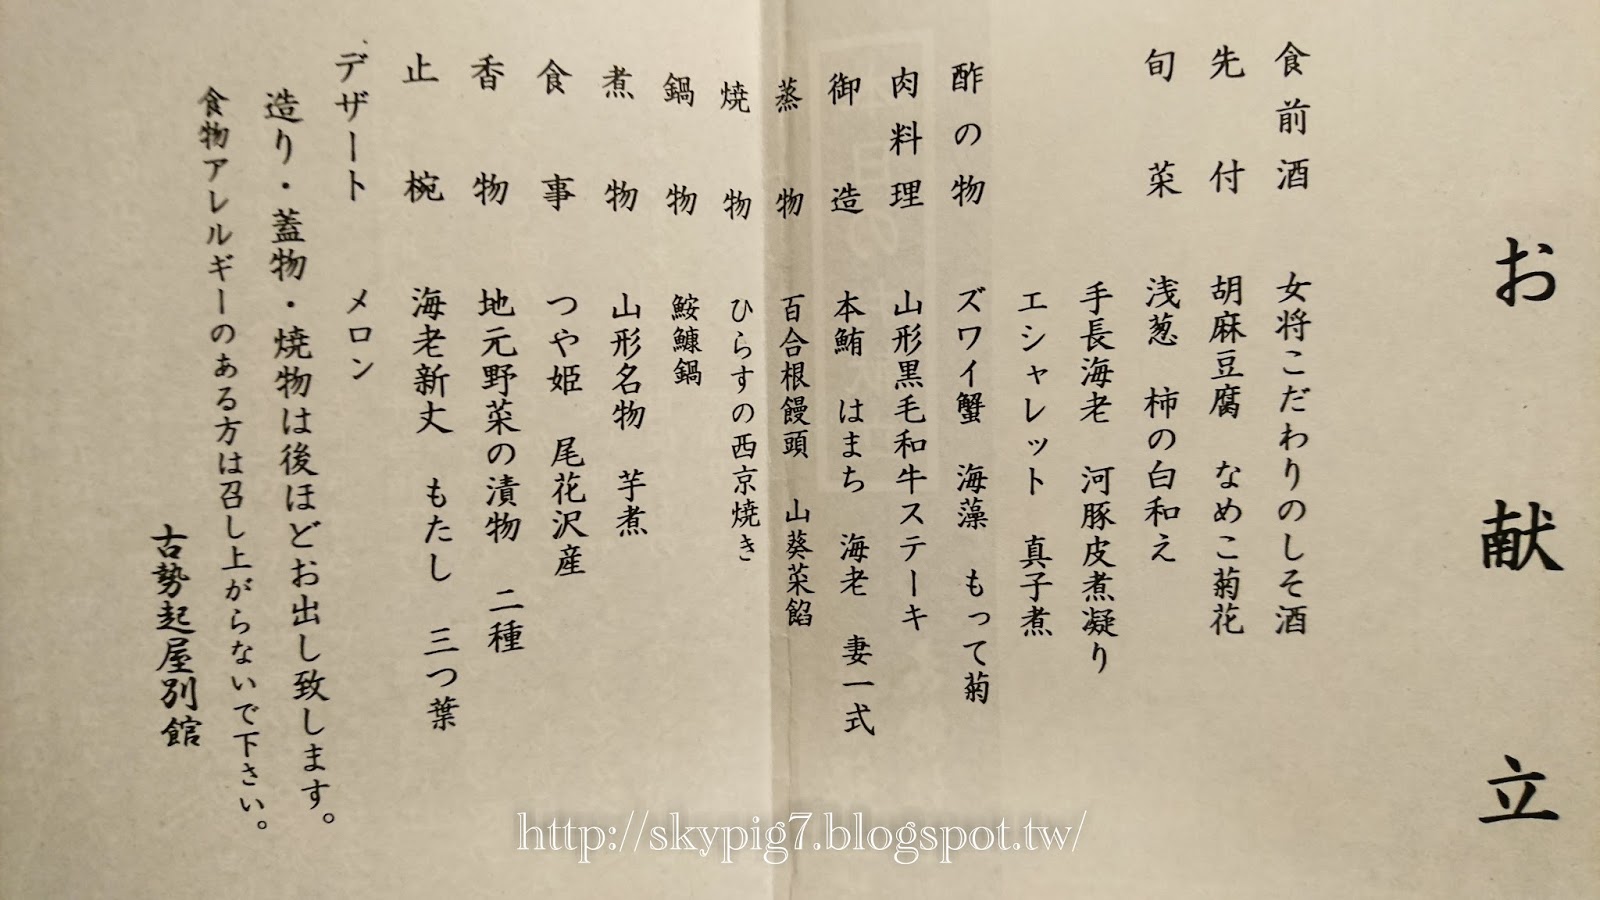 お献立
食前酒　女将こだわりのしそ酒
先付　胡麻豆腐　なめこ菊花
旬菜　浅葱　柿の白和え
手長海老　河豚皮煮凝り
エシャレット　真子煮
酢の物　ズワイ蟹　海藻　もって菊
肉料理　山形黒毛和牛ステーキ
御造　本鮪　はまち　海老　妻一式
蒸物　百合根饅頭　山葵菜餡
焼物　ひらすの西京焼き
鍋物　鮟鱇鍋
煮物　山形名物　芋煮
食事　つや姫　尾花沢産
香物　地元野菜の漬物　二種
止椀　海老新丈　もたし　三つ葉
デザート　メロン
造り・蓋物・焼物は後ほどお出し致します。
食物アレルギーのある方は召し上がらないで下さい。
古勢起屋別館
http://skypig7.blogspot.tw/